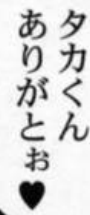 タカくん
ありがとぉ♥